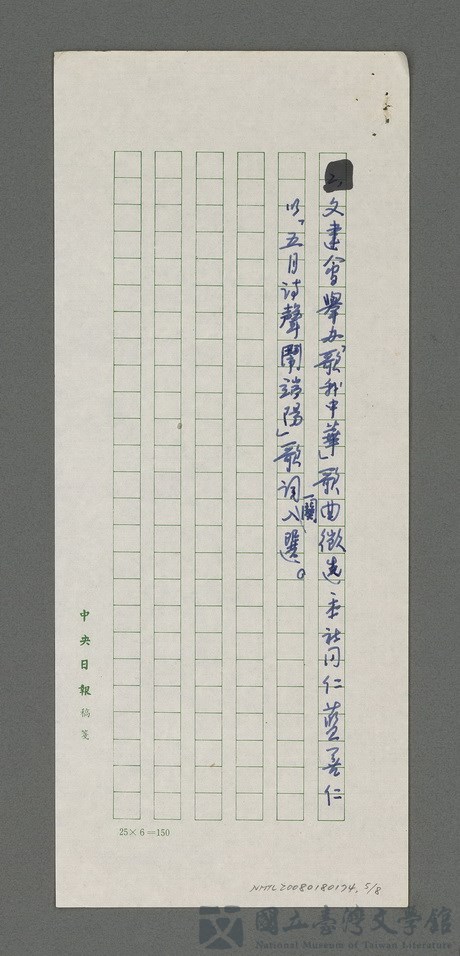 文建會舉办「歌我中華」歌曲徵選,本社同仁藍善仁
以「五月詩聲鬧端陽」歌詞一闋入選。
中央日報稿箋
25×6=150
NMTL20080180174, 5/8
國立臺灣文學館
National Museum of Taiwan Literature